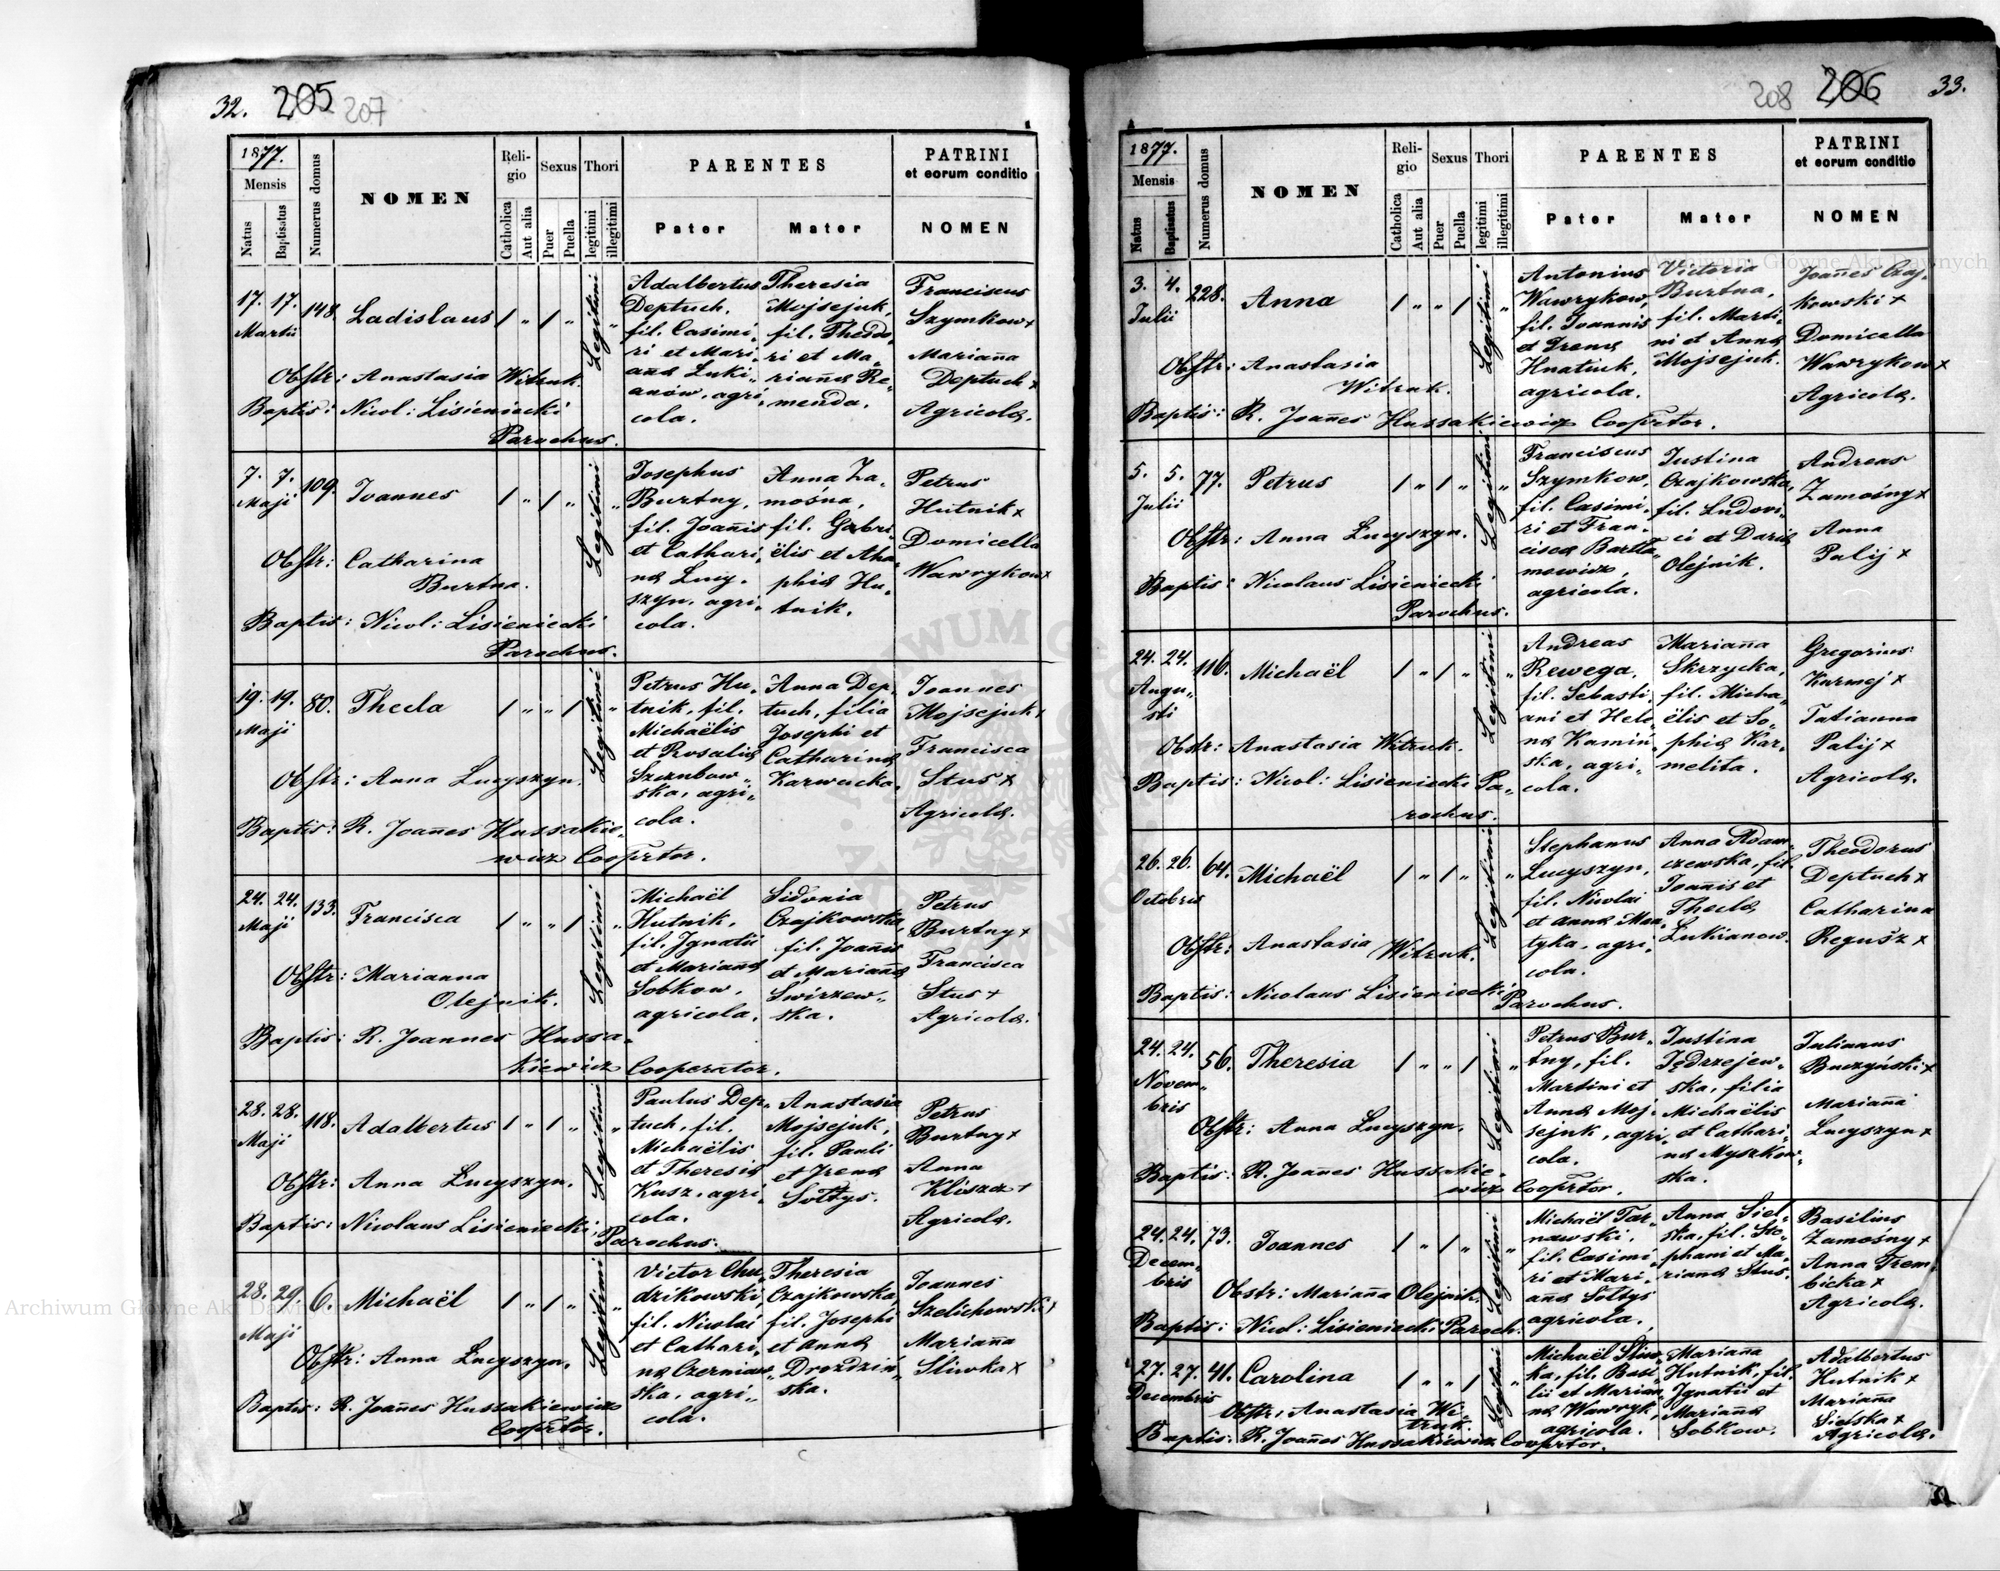 32. 205 207
1877.
Mensis
Natus
Baptisatus
Numerus domus
NOMEN
Religio
Catholica
Aut alia
Sexus
Puer
Puella
Thori
legitimi
illegitimi
PARENTES
Pater
Mater
PATRINI
et eorum conditio
NOMEN
17. 17. Martii 148. Ladislaus / " / " Legitimi "
Obstr: Anastasia Witruk.
Baptis: Nicol: Lisieniecki
Parochus.
Adalbertus
Deptuch,
fil. Casimi„
ri et Mari„
annæ Luki„
anów, agri„
cola.
Theresia
Mojsejuk,
fil. Theodo„
ri et Ma„
riannæ Re„
menda.
Franciscus
Szymkow +
Marianna
Deptuch +
Agricolæ.
7. 7. Maji 109. Joannes / " / " Legitimi "
Obstr: Catharina
Burtna.
Baptis: Nicol: Lisieniecki
Parochus.
Josephus
Burtny,
fil. Joannis
et Cathari„
næ Lucy„
szyn, agri„
cola.
Anna Za„
mośna,
fil. Gabri„
ëlis et Aha„
phiæ Hu„
tnik.
Petrus
Hutnik +
Domicella
Wawrykow +
19. 19. Maji 80. Thecla / " " / Legitimi "
Obstr: Anna Lucyszyn.
Baptis: R. Joannes Hussakie„
wicz Cooprtor.
Petrus Hu„
tnik, fil.
Michaëlis
et Rosaliæ
ska, agri„
cola.
Anna Dep„
tuch, filia
Josephi et
Catharinæ
Karwacka.
Joannes
Mojsejuk +
Francisca
Stus +
Agricolæ.
24. 24. Maji 133. Francisca / " " / Legitimi "
Obstr: Marianna
Olejnik.
Baptis: R. Joannes Hussa„
kiewicz Cooperator.
Michaël
Hutnik,
fil. Ignatii
et Mariannæ
Sobkow,
agricola.
Sidonia
Czajkowska,
fil. Joannis
et Mariannæ
Świrzew„
ska.
Petrus
Burtny +
Francisca
Stus +
Agricolæ.
28. 28. Maji 118. Adalbertus / " / " Legitimi "
Obstr: Anna Lucyszyn.
Baptis: Nicolaus Lisieniecki,
Parochus.
Paulus Dep„
tuch, fil.
Michaëlis
et Theresiæ
Kusz, agri„
cola.
Anastasia
Mojsejuk,
fil. Pauli
et Irenæ
Sołtys.
Petrus
Burtny +
Anna
Kliszcz +
Agricolæ.
28. 29. Maji 6. Michaël / " / " Legitimi "
Obstr: Anna Lucyszyn.
Baptis: R. Joannes Hussakiewicz
Cooprtor.
Victor Chu„
dzikowski,
fil. Nicolai
et Cathari„
næ Czerniaw„
ska, agri„
cola.
Theresia
Czajkowska,
fil. Josephi
et Annæ
Drozdziń„
ska.
Joannes
Szelichowski +
Marianna
Sliwka +
208 206 33.
1877.
Mensis
Natus
Baptisatus
Numerus domus
NOMEN
Religio
Catholica
Aut alia
Sexus
Puer
Puella
Thori
legitimi
illegitimi
PARENTES
Pater
Mater
PATRINI
et eorum conditio
NOMEN
3. 4. Julii 228. Anna / " " / Legitimi "
Obstr: Anastasia
Witruk.
Baptis: R. Joannes Hussakiewicz Cooprtor.
Antonius
Wawrykow,
fil. Joannis
et Irenæ
Hnatiuk,
agricola.
Victoria
Burtna,
fil. Marti„
ni et Annæ
Mojsejuk.
Joannes Czaj„
kowski +
Domicella
Wawrykow +
Agricolæ.
5. 5. Julii 77. Petrus / " / " Legitimi "
Obstr: Anna Lucyszyn.
Baptis: Nicolaus Lisieniecki
Parochus.
Franciscus
Szymkow,
fil. Casimi„
ri et Fran„
ciscæ Bartło„
mowicz,
agricola.
Justina
Czajkowska,
fil. Ludovi„
ci et Dariæ
Olejnik.
Andreas
Zamośny +
Anna
Palij +
24. 24. Augu„
sti 116. Michaël / " / " Legitimi "
Obstr: Anastasia Witruk.
Baptis: Nicol: Lisieniecki Pa„
rochus.
Andreas
Rewega,
fil. Sebasti„
ani et Hele„
næ Kamiń„
ska, agri„
cola.
Marianna
Skrzycka,
fil. Micha„
ëlis et So„
phiæ Kar„
melita.
Gregorius
Kurmej +
Tatianna
Palij +
Agricolæ.
26. 26. Octobris 64. Michaël / " / " Legitimi "
Obstr: Anastasia
Witruk.
Baptis: Nicolaus Lisieniecki
Parochus.
Stephanus
Lucyszyn,
fil. Nicolai
et Annæ Man„
tyka, agri„
cola.
Anna Adam„
czewska, fil.
Joannis et
Theclæ
Lukianow.
Theodorus
Deptuch +
Catharina
Regusz +
24. 24. Novem„
bris 56. Theresia / " " / Legitimi "
Obstr: Anna Lucyszyn.
Baptis: R. Joannes Hussakie„
wicz Cooprtor.
Petrus Bur„
tny, fil.
Martini et
Annæ Moj„
sejuk, agri„
cola.
Justina
Jędrzejew„
ska, filia
Michaëlis
et Cathari„
næ Myszkow„
ska.
Julianus
Buczyński +
Marianna
Lucyszyn +
24. 24. Decem„
bris 73. Joannes / " / " Legitimi "
Obstr: Marianna Olejnik.
Baptis: Nicol: Lisieniecki Paroch.
Michaël Tar„
nawski,
fil. Casimi„
ri et Mari„
annæ Sołtys
agricola.
Anna Siel„
ska, fil. Ste„
phani et Ma„
riannæ Stus.
Basilius
Zamośny +
Anna Trem„
bicka +
Agricolæ.
27. 27. Decembris 41. Carolina / " " / Legitimi "
Obstr: Anastasia Wi„
truk.
Baptis: R. Joannes Hussakiewicz Cooprtor.
Michaël Sliw„
ka, fil. Basi„
lii et Marian„
næ Wawryk,
agricola.
Marianna
Hutnik, fil.
Ignatii et
Mariannæ
Sobkow.
Adalbertus
Hutnik +
Marianna
Sielska +
Agricolæ.
Archiwum Główne Akt Dawnych
Archiwum Główne Akt Dawnych